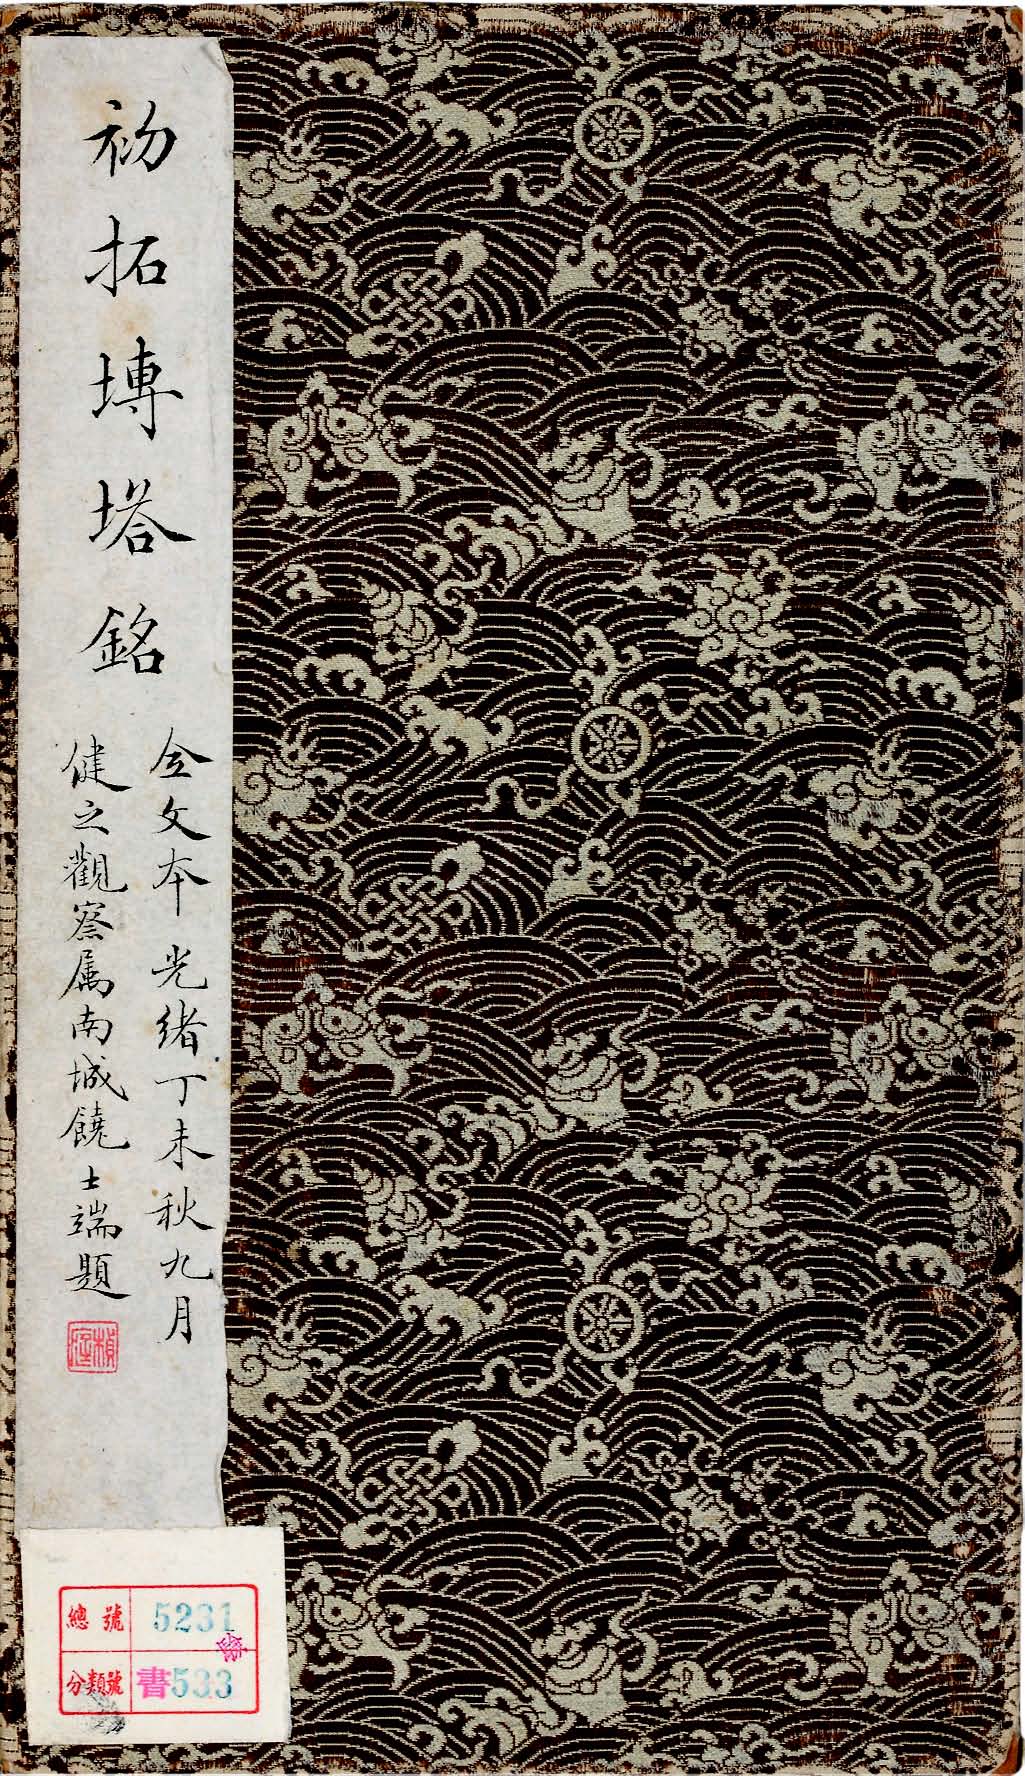 初拓塼塔銘
仝文本 光緒丁未秋九月
健之觀察属南城饒士端題
總號 5231
分類號 書533